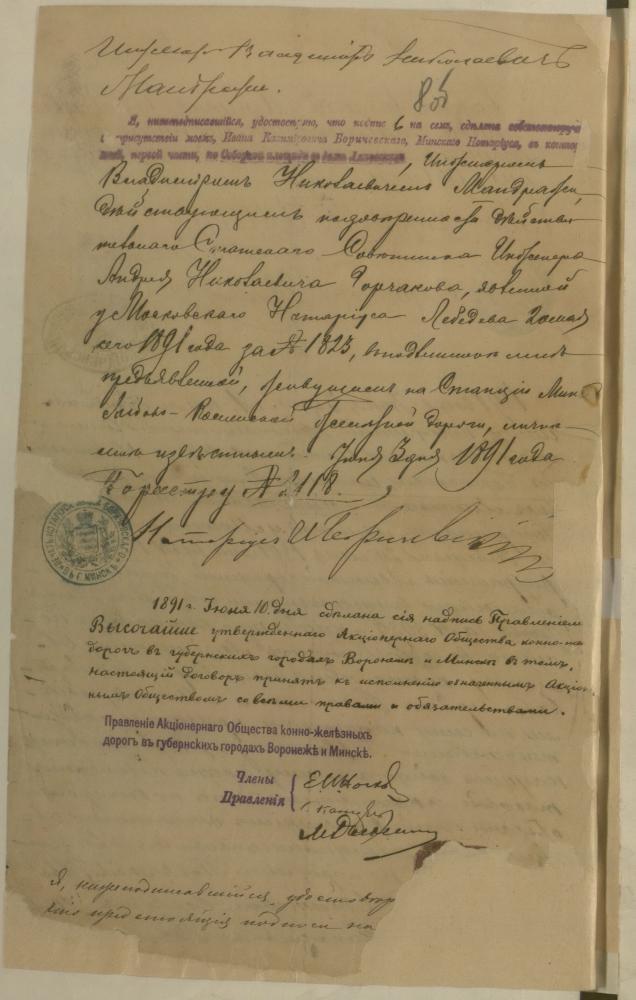 Инженер Владимир Николаевич
Мандражи.
Я, нижеподписавшійся, удостовѣряю, что копія на семъ, сдѣлана собственноручно
присутствіи моемъ, Ивана Казиміровича Боричевскаго, Минскаго Нотаріуса, въ конто
первой части, по Соборной площади въ домѣ, Инженеромъ
Владиміромъ Николаевичемъ Мандражи,
дѣйствующимъ по довѣренности Дѣйстви
тельнаго Статскаго Совѣтника Инженера
Андрея Николаевича Горчакова, явленной
у Московскаго Нотаріуса Лебедева 20 мая
сего 1891 года за № 1823, въ подлинномъ мнѣ
предъявленной, живущимъ на Станціи Минскъ
Либаво-Роменской желѣзной дороги, лично
мнѣ извѣстнымъ. Іюня 3 дня 1891 года
По реестру № 2118.
Нотаріусъ И Боричевскій
1891 г. Іюня 10 дня сдѣлана сія надпись Правленіемъ
Высочайше утвержденнаго Акціонернаго Общества конно-же
дорогъ въ губернскихъ городахъ Воронежѣ и Минскѣ въ томъ,
настоящій договоръ принятъ къ исполненію означеннымъ Акціо
нымъ Обществомъ со всѣми правами и обязательствами.
Правленіе Акціонернаго Общества конно-желѣзныхъ
дорогъ въ губернскихъ городахъ Воронежѣ и Минскѣ.
Члены
Правленія
Я, нижеподписавшійся, удостовѣр
что предстоящія подписи на